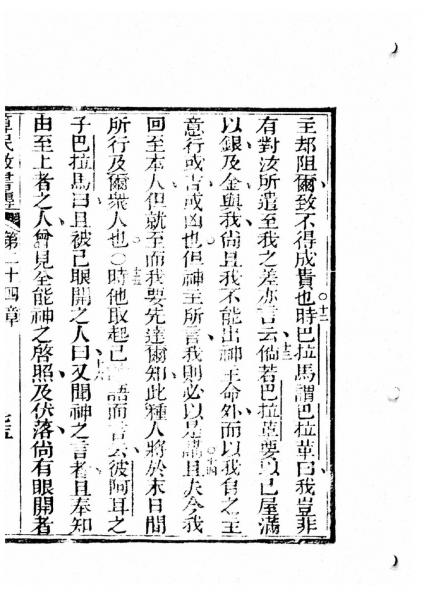 主却阻爾致不得成貴也○十二時巴拉馬謂巴拉革曰我豈非
有對汝所遣至我之差亦言云十三倘若巴拉革要以己屋滿
以銀及金與我尙且我不能出神主命外而以我自之主
意行或吉或凶也但神主所言我則必以是講且○十四夫今我
回至本人但就至而我要先達爾知此種人將於末日間
所行及爾眾人也○十五時他取起己譬語而言云彼阿耳之
子巴拉馬曰且被己眼開之人曰十六又聞神之言者且奉知
由至上者之人曾見全能神之啓照及伏落尙有眼開者
第二十四章